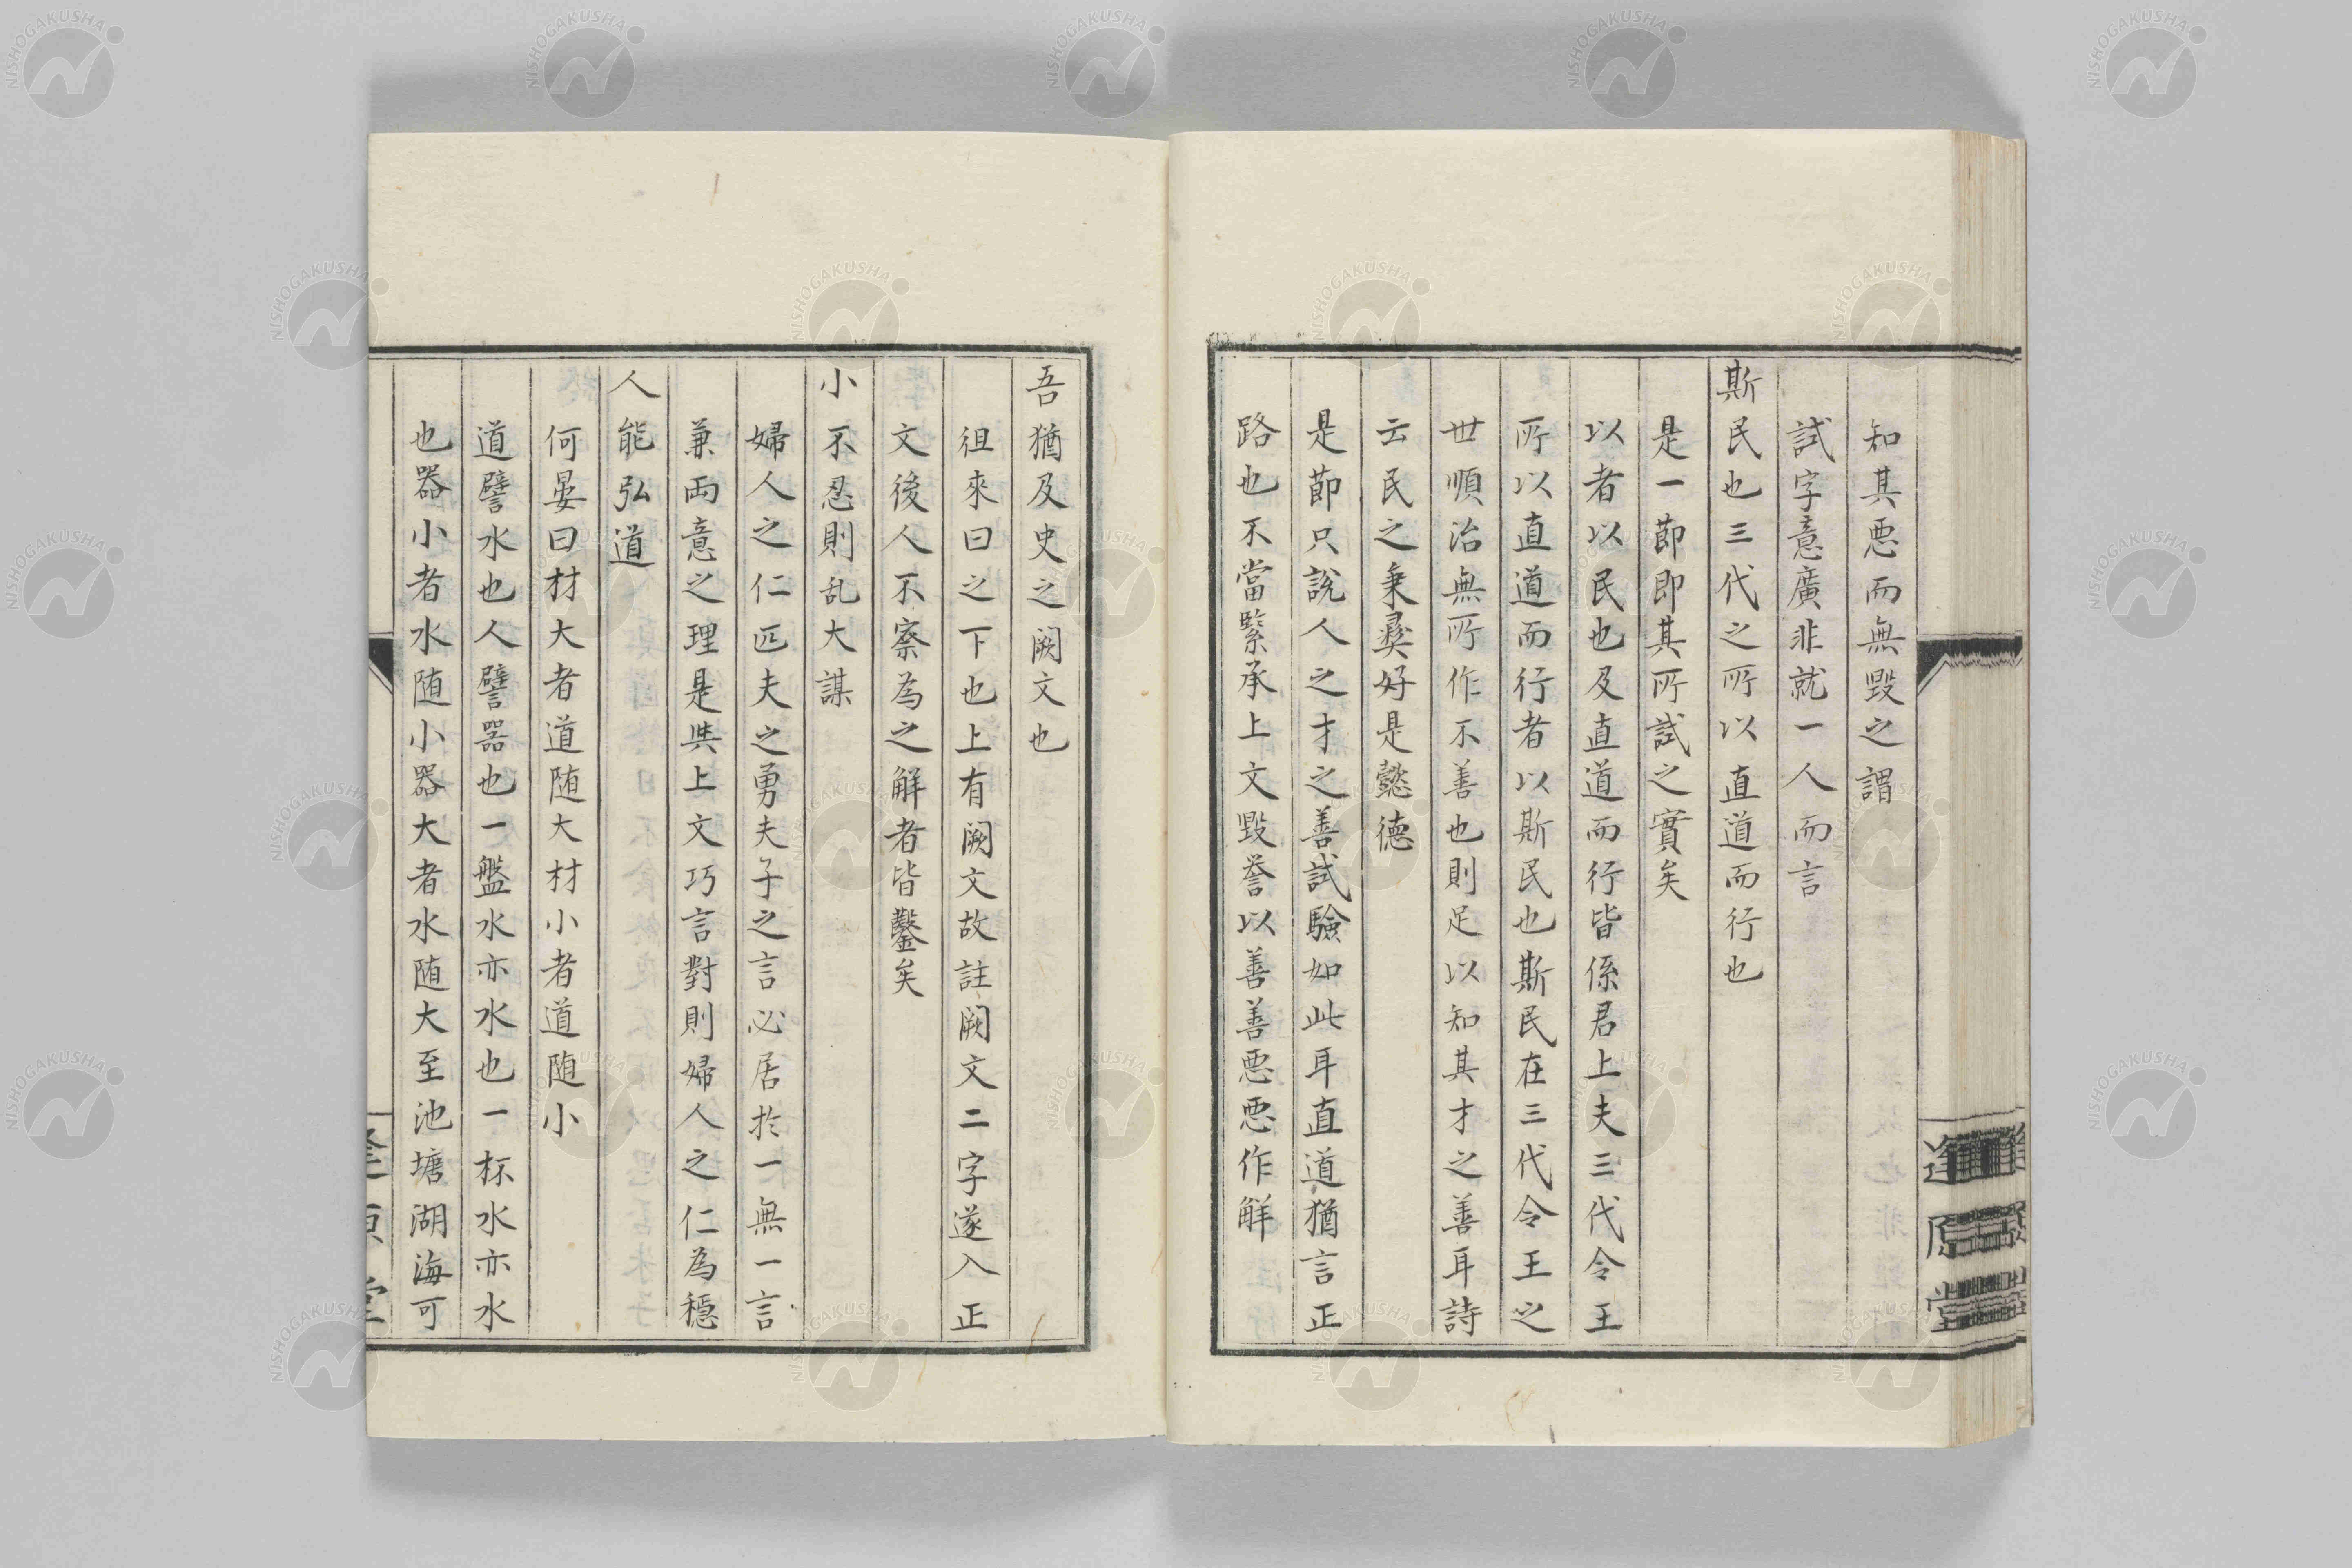 知其悪而無毀之謂
試字意廣非就一人而言
斯民也三代之所以直道而行也
是一節即其所試之實矣
以者以民也及直道而行皆係君上夫三代令王
所以直道而行者以斯民也斯民在三代令王之
世順治無所作不善也則足以知其才之善耳詩
云民之秉彛好是懿德
是節只說人之才之善試驗如此耳直道猶言正
路也不當緊承上文毀誉以善善悪悪作解
逢原堂
吾猶及史之闕文也
徂來曰之下也上有闕文故註闕文二字遂入正
文後人不察為之解者皆鑿矣
小不忍則乱大謀
婦人之仁匹夫之勇夫子之言必居於一無一言
兼両意之理是與上文巧言對則婦人之仁為穏
人能弘道
何晏曰材大者道随大材小者道随小
道譬水也人譬器也一盤水亦水也一杯水亦水
也器小者水随小器大者水随大至池塘湖海可
NISHOGAKUSHA